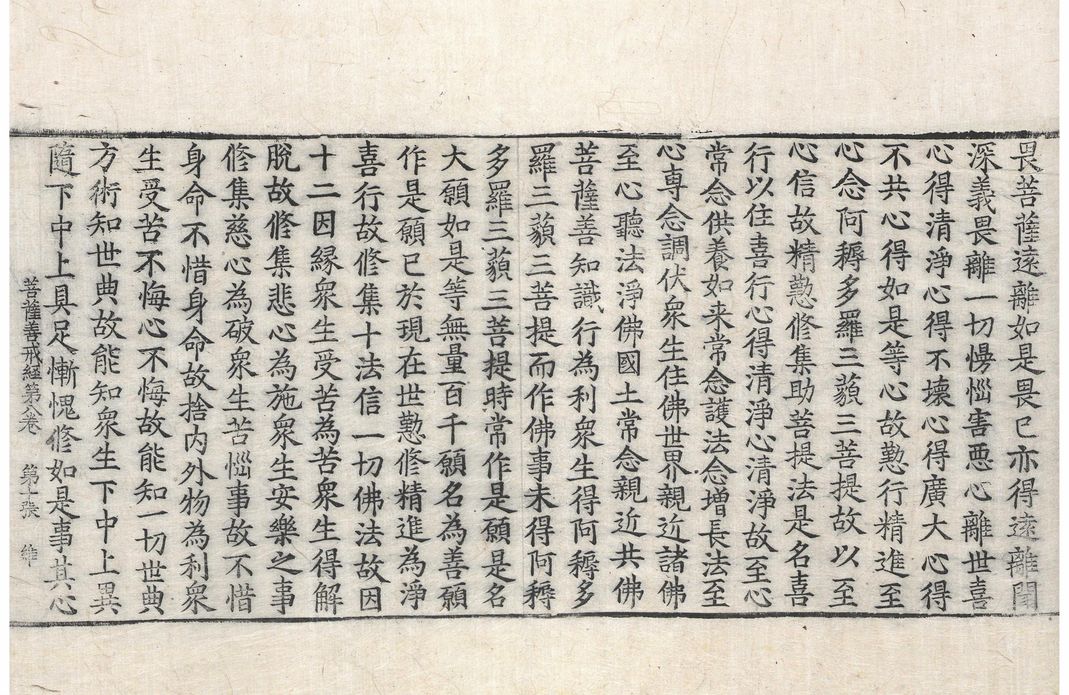 畏菩薩遠離如是畏已亦得遠離聞
深義畏離一切㤭慢惱害惡心離世喜
心得清淨心得不壞心得廣大心得
不共心得如是等心故懃行精進至
心念阿耨多羅三藐三菩提故以至
心信故精懃修集助菩提法是名喜
行以住喜行心得清淨心清淨故至心
常念供養如来常念護法念增長法至
心專念調伏衆生住佛世界親近諸佛
至心聽法淨佛國土常念親近共佛
菩薩善知識行為利衆生得阿耨多
羅三藐三菩提而作佛事未得阿耨
多羅三藐三菩提時常作是願是名
大願如是等無量百千願名為善願
作是願已於現在世懃修精進為淨
喜行故修集十法信一切佛法故因
十二因縁衆生受苦為苦衆生得解
脫故修集悲心為施衆生安樂之事
修集慈心為破衆生苦惱事故不惜
身命不惜身命故捨内外物為利衆
生受苦不悔心不悔故能知一切世典
方術知世典故能知衆生下中上異
隨下中上具足慚愧修如是事其心
菩薩善戒経第八卷 第十張 維